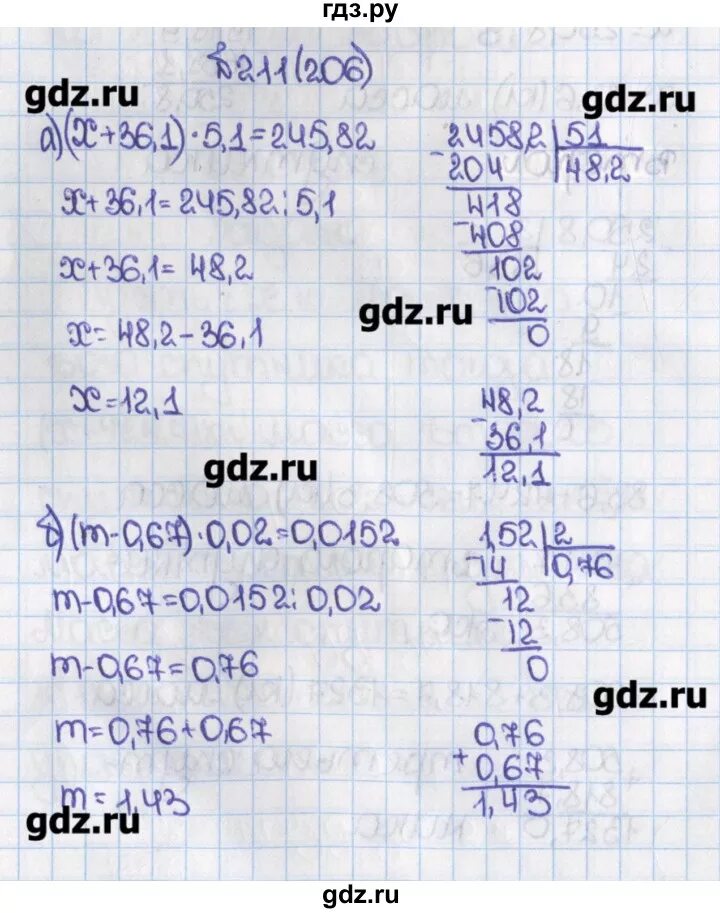 гдз.ру
№211(206)
gdz.ru
gdz.ru
а)(x+36,1)·5,1=245,82
x+36,1=245,82:5,1
x+36,1=48,2
x=48,2-36,1
x=12,1
2458,2 51
-204 48,2
418
-408
102
-102
0
gdz.ru
48,2
-36,1
12,1
gdz.ru
б)(m-0,67)·0,02=0,0152
m-0,67=0,0152:0,02
m-0,67=0,76
m=0,76+0,67
m=1,43
1,52 2
-14 0,76
12
-12
0
gdz.ru
0,76
+0,67
1,43
gdz.ru
gdz.ru